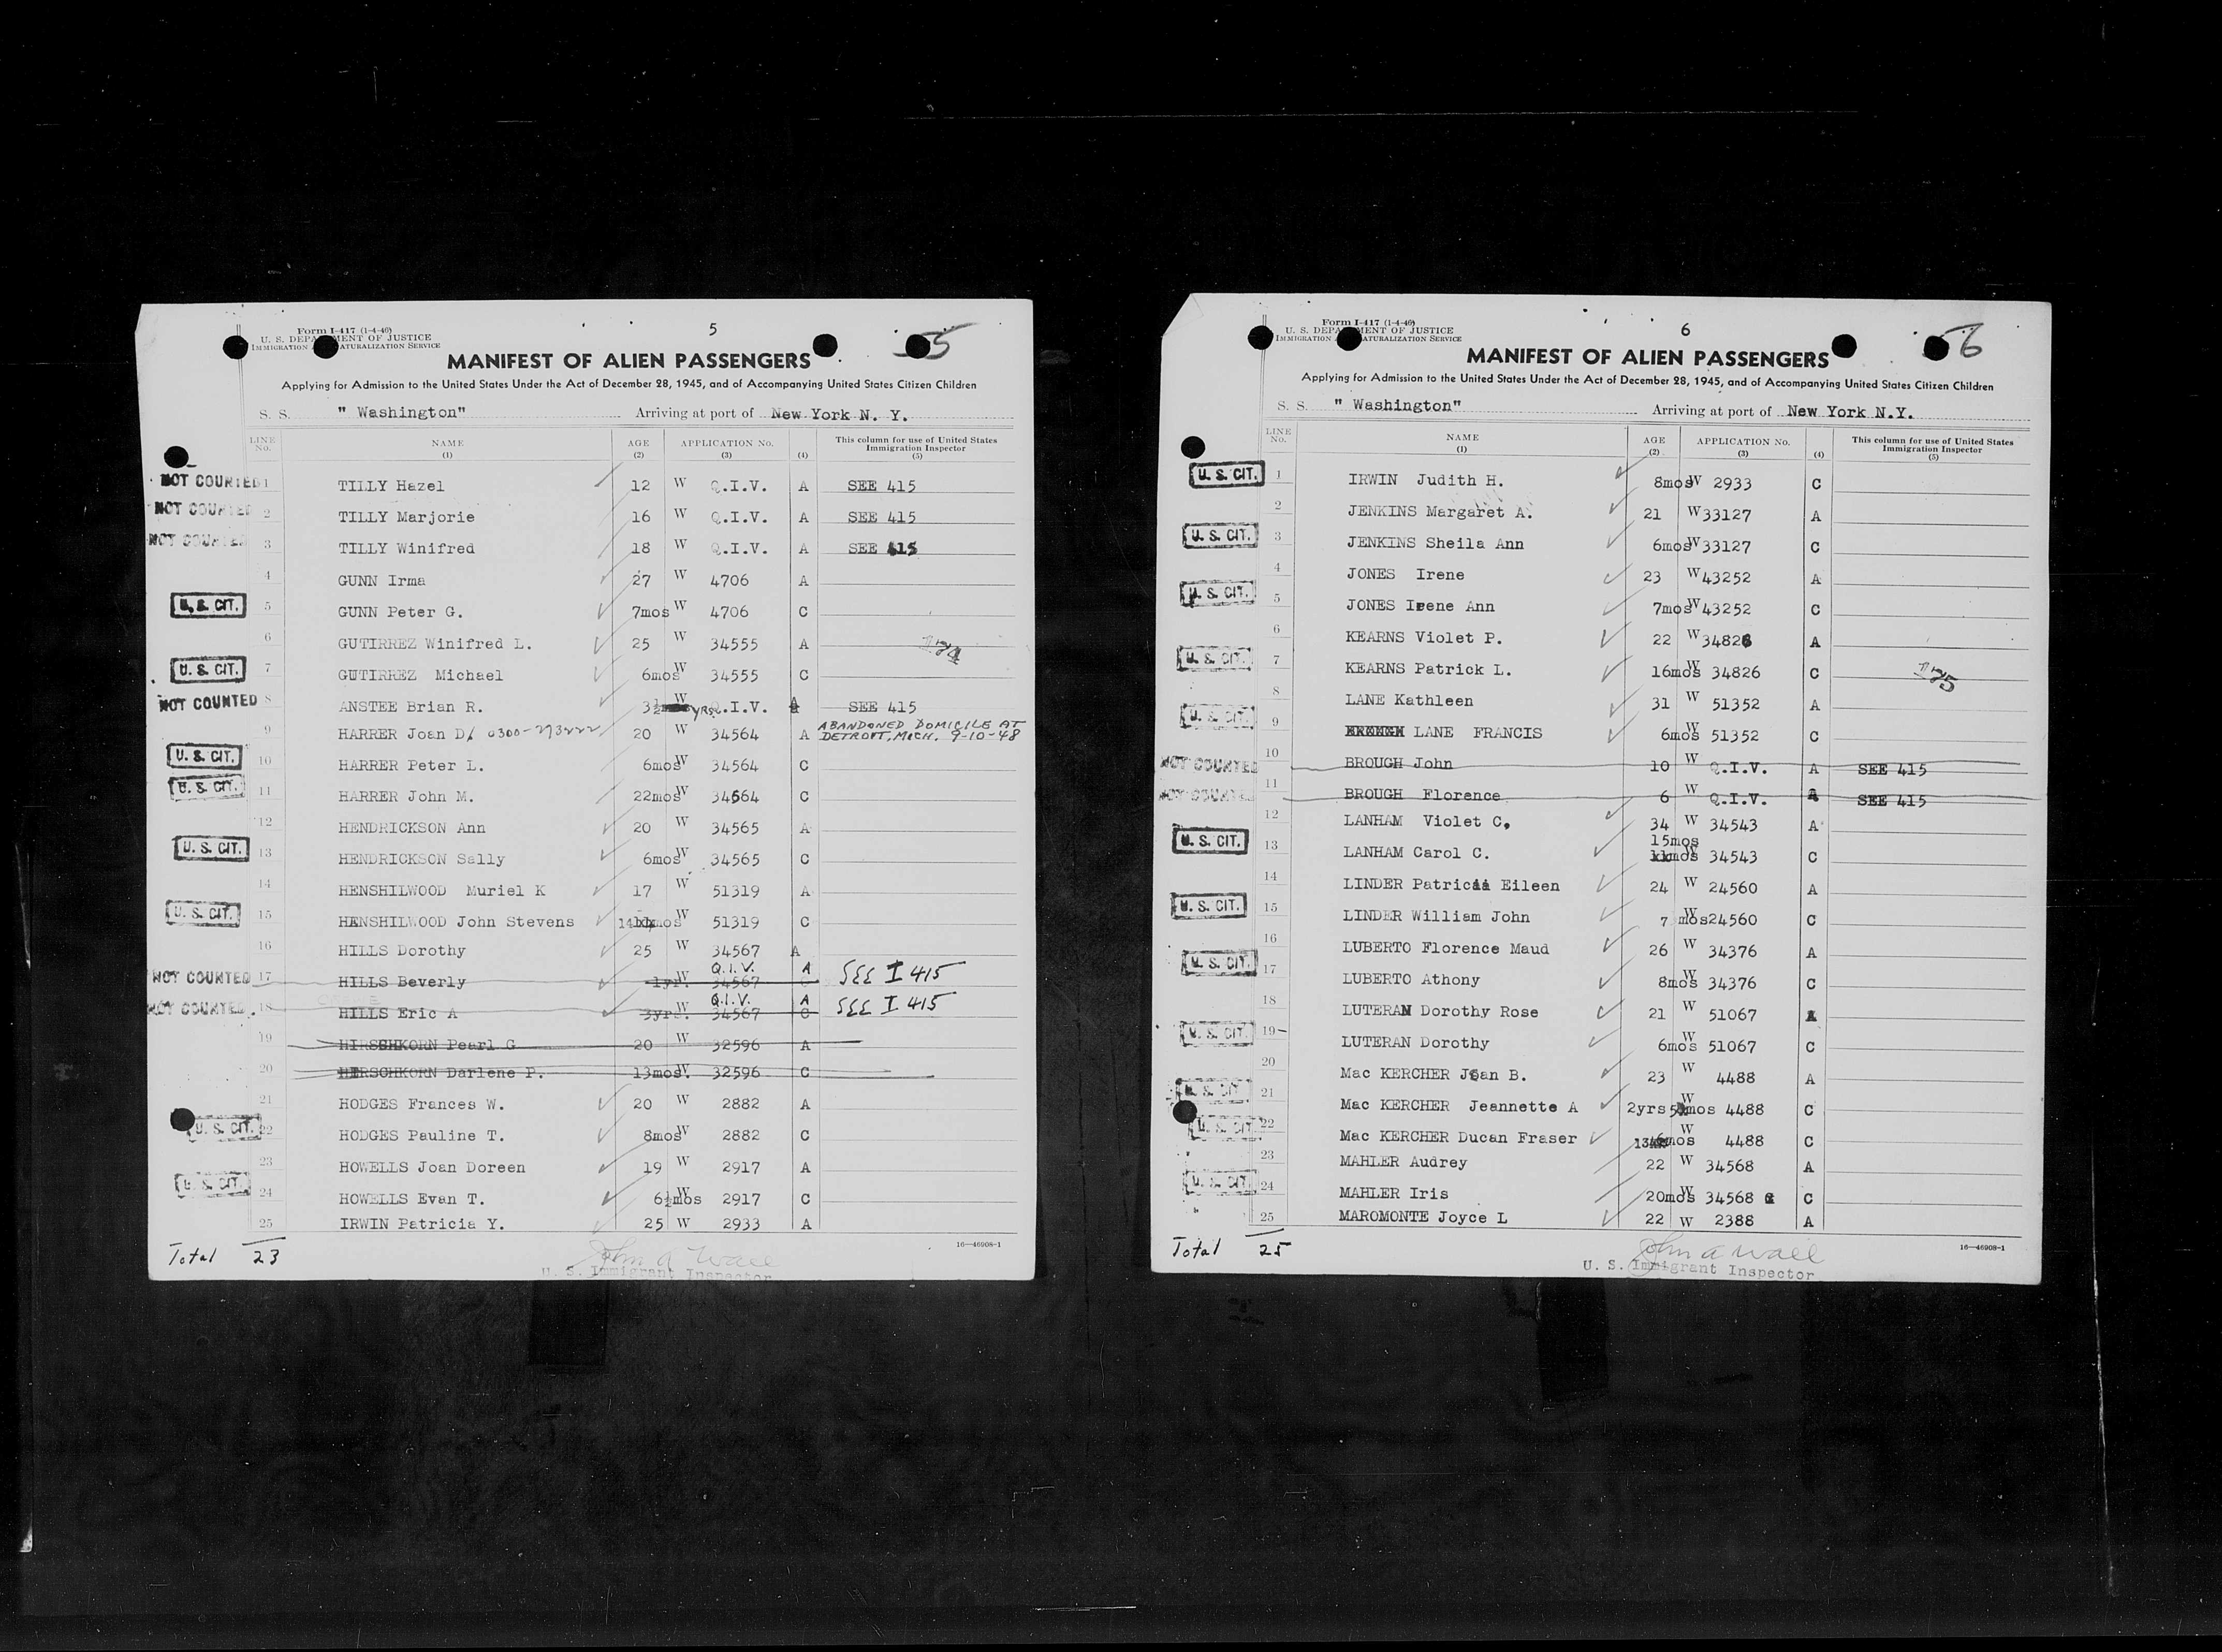 Form I-417 (1-4-46)
U. S. DEPA MENT OF JUSTICE
IMMIGRATION ATURALIZATION SERVICE
5
55
MANIFEST OF ALIEN PASSENGERS
Applying for Admission to the United States Under the Act of December 28, 1945, and of Accompanying United States Citizen Children
S. S. " Washington" Arriving at port of New York N. Y.
LINE No. NAME (1) AGE (2) APPLICATION No. (3) (4) This column for use of United States Immigration Inspector (5)
NOT COUNTED 1 TILLY Hazel 12 W Q.I.V. A SEE 415
NOT COUNTED 2 TILLY Marjorie 16 W Q.I.V. A SEE 415
NOT COUNTED 3 TILLY Winifred 18 W Q.I.V. A SEE 415
4 GUNN Irma 27 W 4706 A
U. S. CIT. 5 GUNN Peter G. 7mos W 4706 C
6 GUTIRREZ Winifred L. 25 W 34555 A
U. S. CIT. 7 GUTIRREZ Michael 6mos W 34555 C
NOT COUNTED 8 ANSTEE Brian R. 3½ yrs W Q.I.V. A SEE 415
9 HARRER Joan D/ 0300-293222 20 W 34564 A ABANDONED DOMICILE AT DETROIT, MICH. 9-10-48
U. S. CIT. 10 HARRER Peter L. 6mos W 34564 C
U. S. CIT. 11 HARRER John M. 22mos W 34564 C
12 HENDRICKSON Ann 20 W 34565 A
U. S. CIT. 13 HENDRICKSON Sally 6mos W 34565 C
14 HENSHILWOOD Muriel K 17 W 51319 A
U. S. CIT. 15 HENSHILWOOD John Stevens 14 mos W 51319 C
16 HILLS Dorothy 25 W 34567 A
NOT COUNTED 17 HILLS Beverly 1yr. W 34567 Q.I.V. C A SEE I 415
NOT COUNTED 18 HILLS Eric A 3yrs. W 34567 Q.I.V. C A SEE I 415
19 HIRSHKORN Pearl G 20 W 32596 A
20 HIRSCHKORN Darlene P. 13mos. W 32596 C
21 HODGES Frances W. 20 W 2882 A
U. S. CIT. 22 HODGES Pauline T. 8mos W 2882 C
23 HOWELLS Joan Doreen 19 W 2917 A
U. S. CIT. 24 HOWELLS Evan T. 6½mos W 2917 C
25 IRWIN Patricia Y. 25 W 2933 A
Total 23
16—46908-1
John A Wall
U. S. Immigrant Inspector
Form I-417 (1-4-46)
U. S. DEPA MENT OF JUSTICE
IMMIGRATION ATURALIZATION SERVICE
6
56
MANIFEST OF ALIEN PASSENGERS
Applying for Admission to the United States Under the Act of December 28, 1945, and of Accompanying United States Citizen Children
S. S. " Washington" Arriving at port of New York N.Y.
LINE No. NAME (1) AGE (2) APPLICATION No. (3) (4) This column for use of United States Immigration Inspector (5)
U. S. CIT. 1 IRWIN Judith H. 8mos W 2933 C
2 JENKINS Margaret A. 21 W 33127 A
U. S. CIT. 3 JENKINS Sheila Ann 6mos W 33127 C
4 JONES Irene 23 W 43252 A
U. S. CIT. 5 JONES Irene Ann 7mos W 43252 C
6 KEARNS Violet P. 22 W 34826 A
U. S. CIT. 7 KEARNS Patrick L. 16mos W 34826 C
8 LANE Kathleen 31 W 51352 A
U. S. CIT. 9 LANE FRANCIS 6mos W 51352 C
NOT COUNTED 10 BROUGH John 10 W Q.I.V. A SEE 415
NOT COUNTED 11 BROUGH Florence 6 W Q.I.V. A SEE 415
12 LANHAM Violet C. 34 W 34543 A
U. S. CIT. 13 LANHAM Carol C. 15mos W 34543 C
14 LINDER Patricia Eileen 24 W 24560 A
U. S. CIT. 15 LINDER William John 7 mos W 24560 C
16 LUBERTO Florence Maud 26 W 34376 A
U. S. CIT. 17 LUBERTO Athony 8mos W 34376 C
18 LUTERAN Dorothy Rose 21 W 51067 A
U. S. CIT. 19 LUTERAN Dorothy 6mos W 51067 C
20 Mac KERCHER Jean B. 23 W 4488 A
U. S. CIT. 21 Mac KERCHER Jeannette A 2yrs 5 mos W 4488 C
U. S. CIT. 22 Mac KERCHER Ducan Fraser mos W 4488 C
23 MAHLER Audrey 22 W 34568 A
U. S. CIT. 24 MAHLER Iris 20mos W 34568 C
25 MAROMONTE Joyce L 22 W 2388 A
Total 25
16—46908-1
John A Wall
U. S. Immigrant Inspector